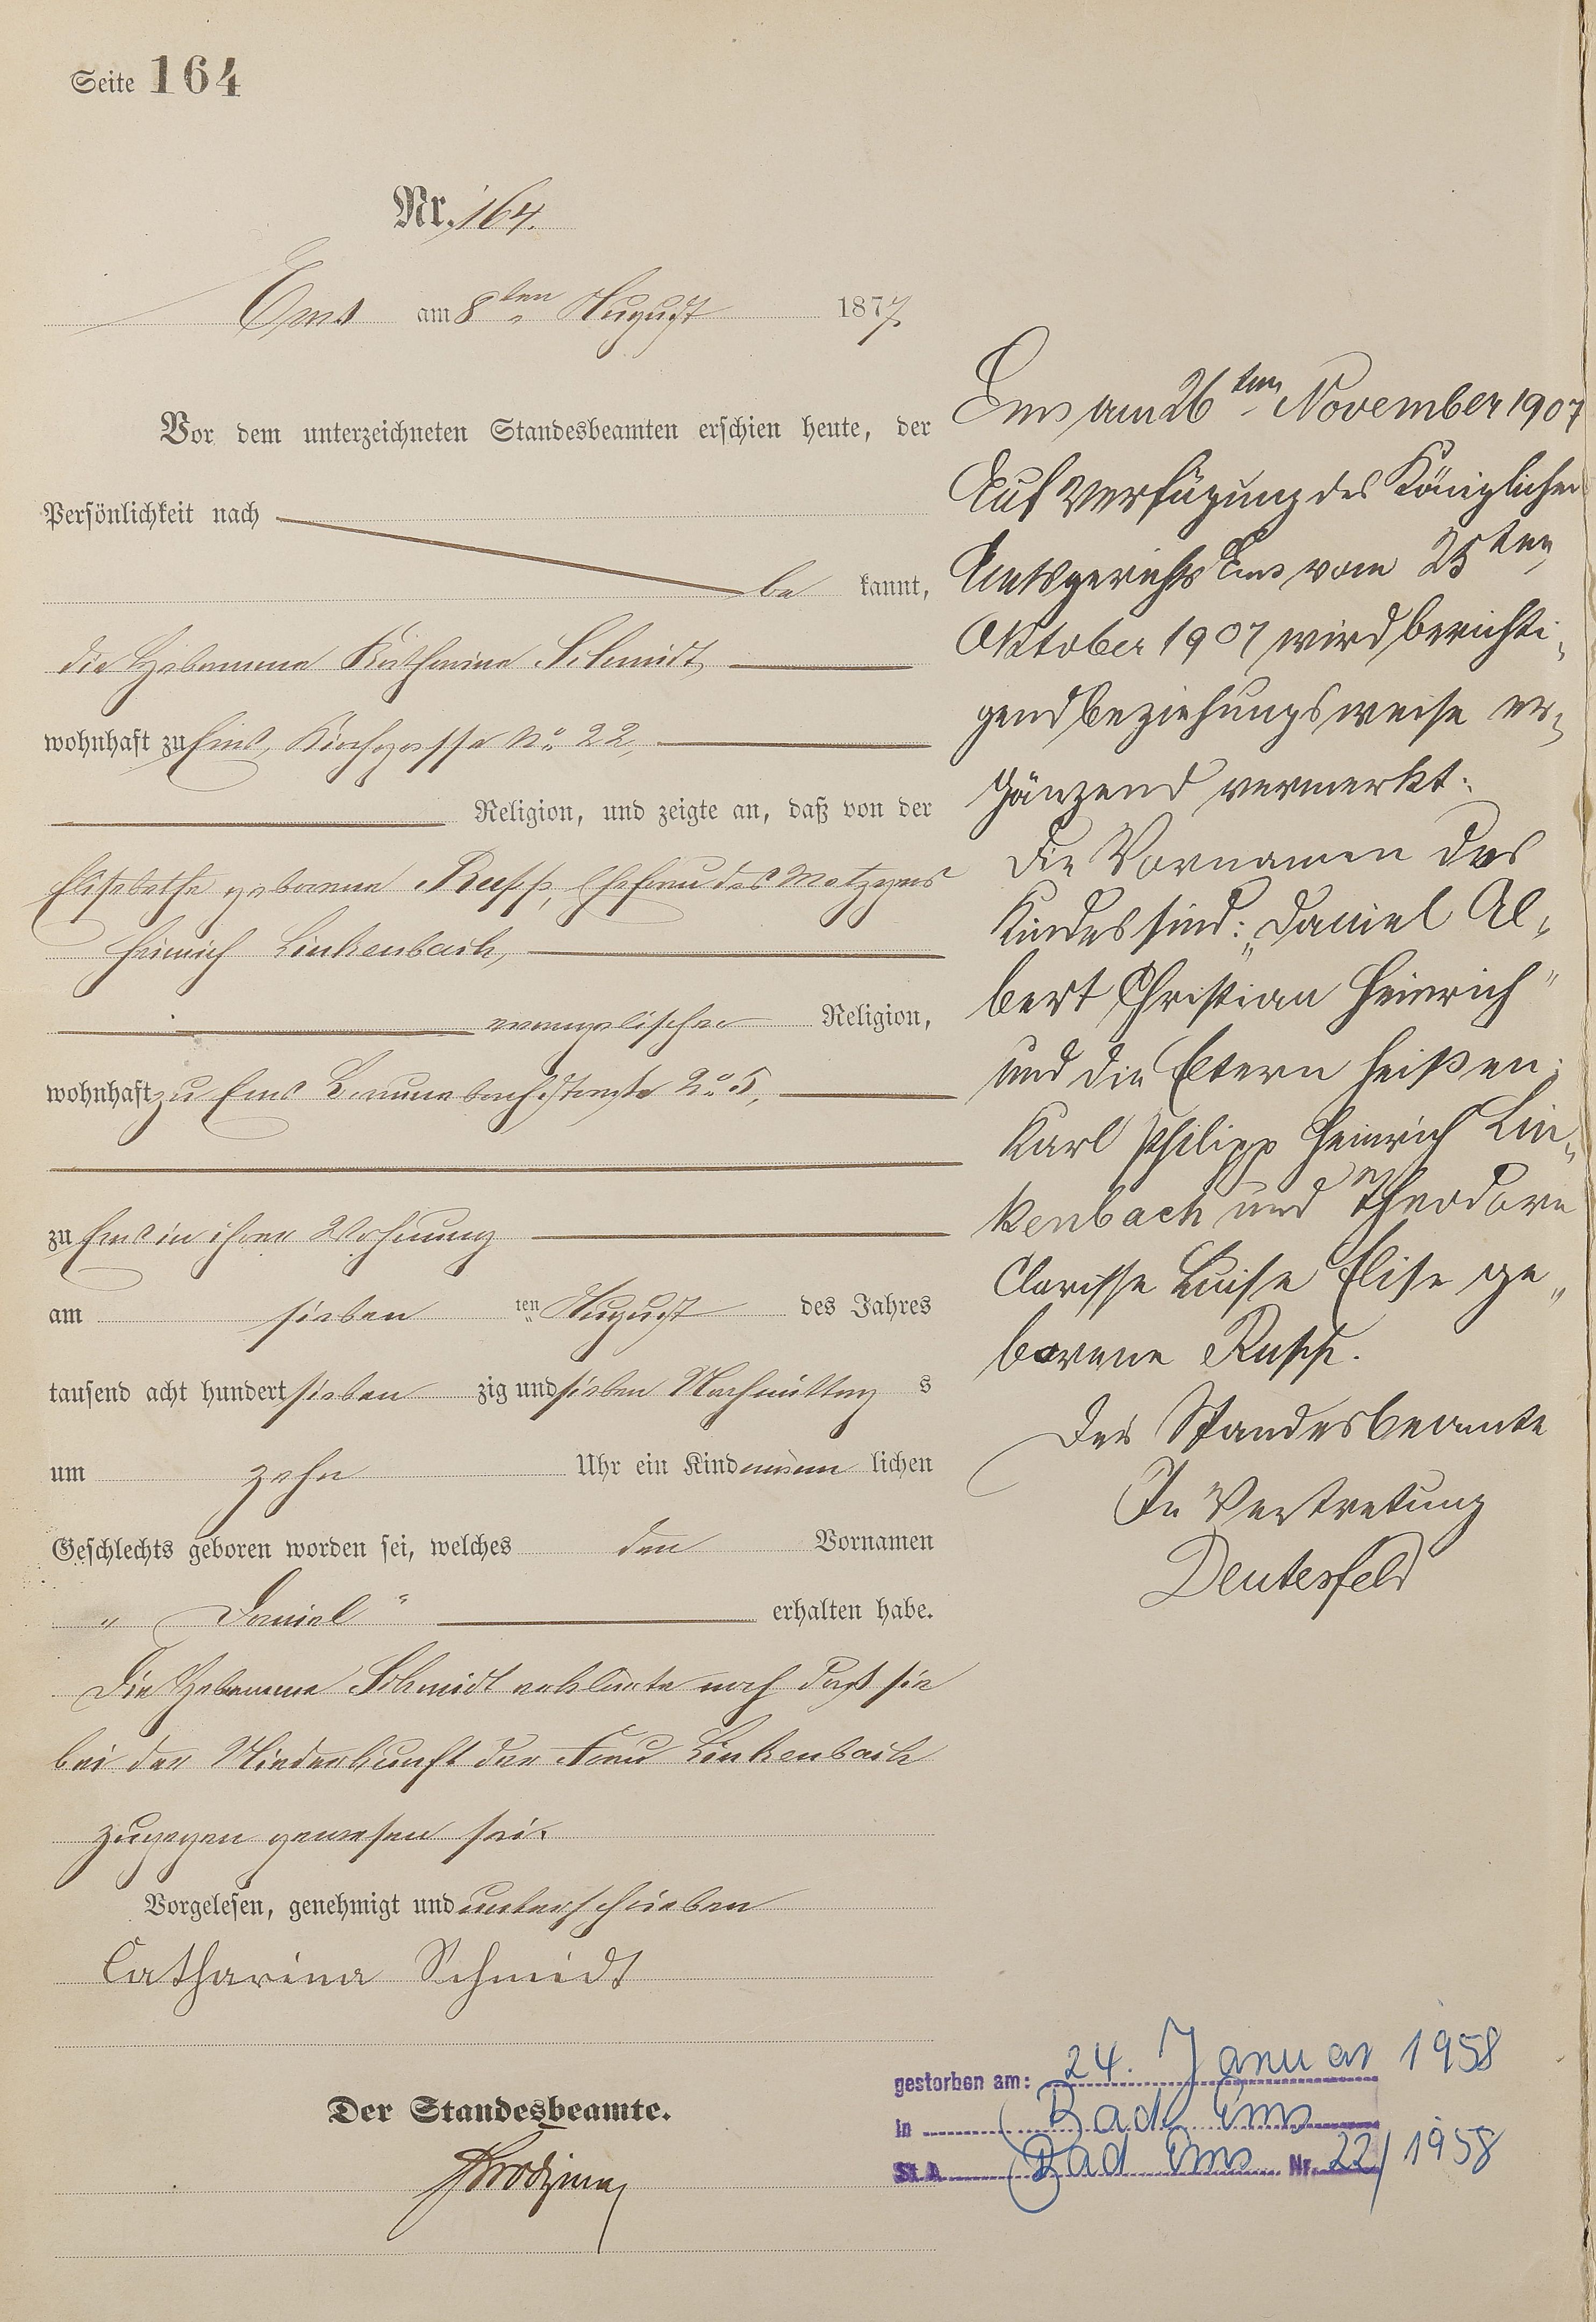 Seite 164
Nr. 164.
Ems am 8ten August 1877.
Vor dem unterzeichneten Standesbeamten erschien heute, der
Persönlichkeit nach
be kannt,
die Hebamme Katharina Schmidt,
wohnhaft zu Ems, Kirchgasse No. 22,
Religion, und zeigte an, daß von der
Elisabetha geborene Rupp, Ehefrau des Metzgers
Heinrich Linkenbach,
evangelischer Religion,
wohnhaft zu Ems No. 5,
zu Ems in ihrer Wohnung
am sieben ten August des Jahres
tausend acht hundert sieben zig und sieben Nachmittag s
um zehn Uhr ein Kind männ lichen
Geschlechts geboren worden sei, welches den Vornamen
„Daniel“ erhalten habe.
Die Hebamme Schmidt erklärte noch daß sie
bei der Niederkunft der Frau Linkenbach
zugegen gewesen sei.
Vorgelesen, genehmigt und unterschrieben
Catharina Schmidt
Der Standesbeamte.
Ems am 26ten November 1907
Auf Verfügung des Königlichen
Amtsgerichts Ems vom 25ten
Oktober 1907 wird berichti-
gend beziehungsweise er-
gänzend vermerkt:
Die Vornamen des
Kindes sind: „Daniel Al-
bert Christian Heinrich“
und die Eltern heißen:
Karl Philipp Heinrich Lin-
kenbach und Theodore
Clarisse Luise Elise ge-
borene Rupp.
Der Standesbeamte
In Vertretung
Deutesfeld
gestorben am: 24. Januar 1958
in Bad Ems
St.A. Bad Ems Nr. 22/1958